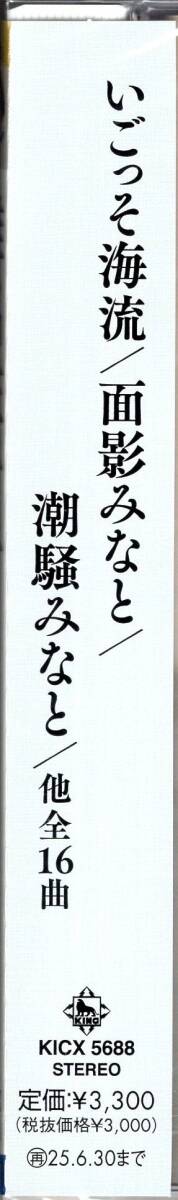 いごっそ海流／面影みなと／
潮騒みなと／他全16曲
KING
KICX 5688
STEREO
定価:¥3,300
(税抜価格¥3,000)
㊞25.6.30まで